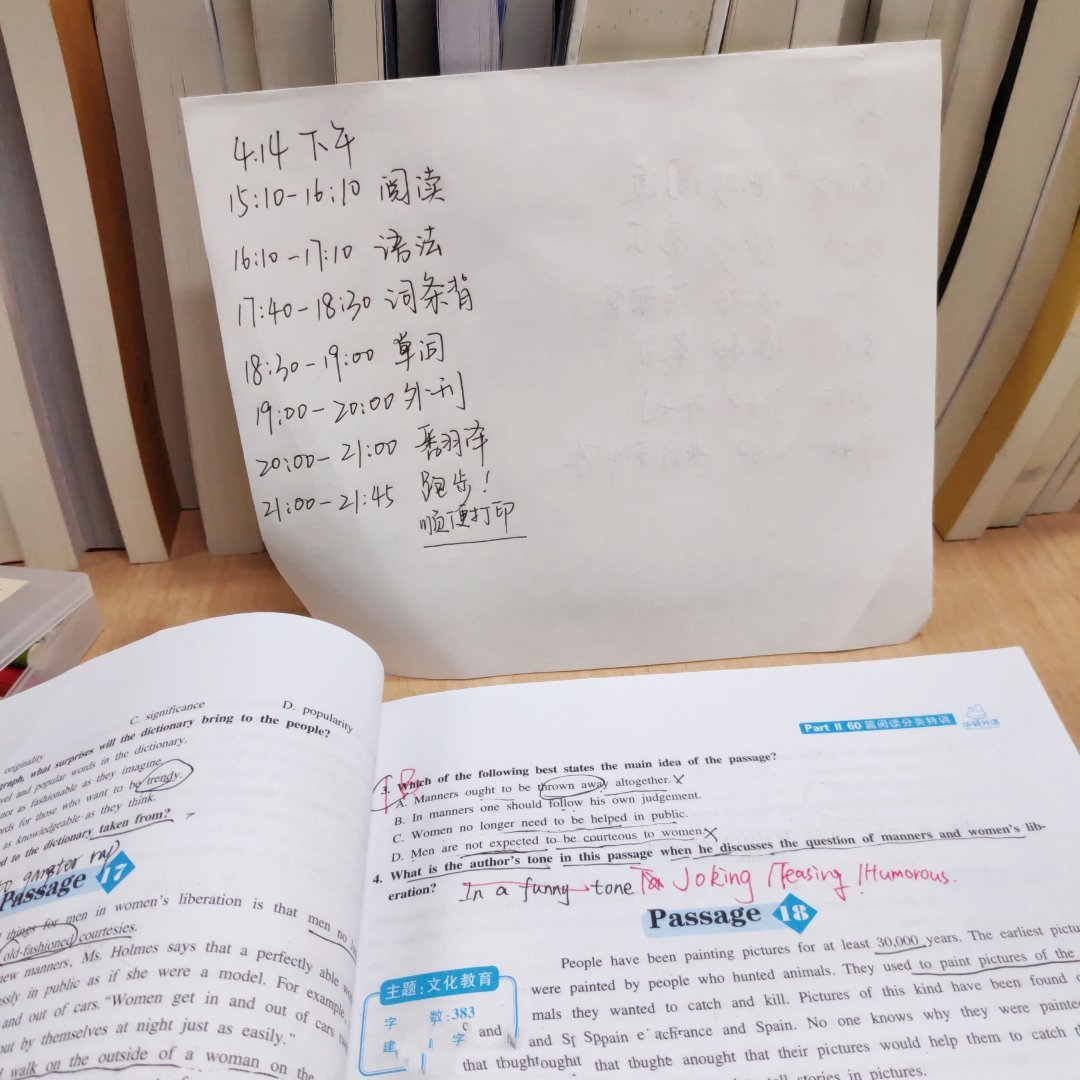 4.14 下午
15:10-16:10 阅读
16:10-17:10 语法
17:40-18:30 词条背
18:30-19:00 单词
19:00-20:00 外刊
20:00-21:00 翻译
21:00-21:45 跑步!
顺便打印
C. significance D. popularity
originality
graph, what surprises will the dictionary bring to the people?
vel and popular words in the dictionary.
not as fashionable as they imagine.
rds for those who want to be trendy.
as knowledgeable as they think.
d to the dictionary taken from?
Passage 17
things for men in women's liberation is that men no
old-fashioned courtesies.
new manners. Ms. Holmes says that a perfectly able
ssly in public as if she were a model. For example,
and out of cars. "Women get in and out of cars
out by themselves at night just as easily."
walk on the outside of a woman on the
Part II 60篇阅读分类特训
华研外语
3. Which of the following best states the main idea of the passage?
A. Manners ought to be thrown away altogether.
B. In manners one should follow his own judgement.
C. Women no longer need to be helped in public.
D. Men are not expected to be courteous to women.
4. What is the author's tone in this passage when he discusses the question of manners and women's lib-
eration? In a funny tone Joking / Teasing / Humorous.
Passage 18
People have been painting pictures for at least 30,000 years. The earliest pictu
were painted by people who hunted animals. They used to paint pictures of the
主题:文化教育
mals they wanted to catch and kill. Pictures of this kind have been found
字 数:383
and Spain. No one knows why they were painte
建
字
that their pictures would help them to catch
stories in pictures.